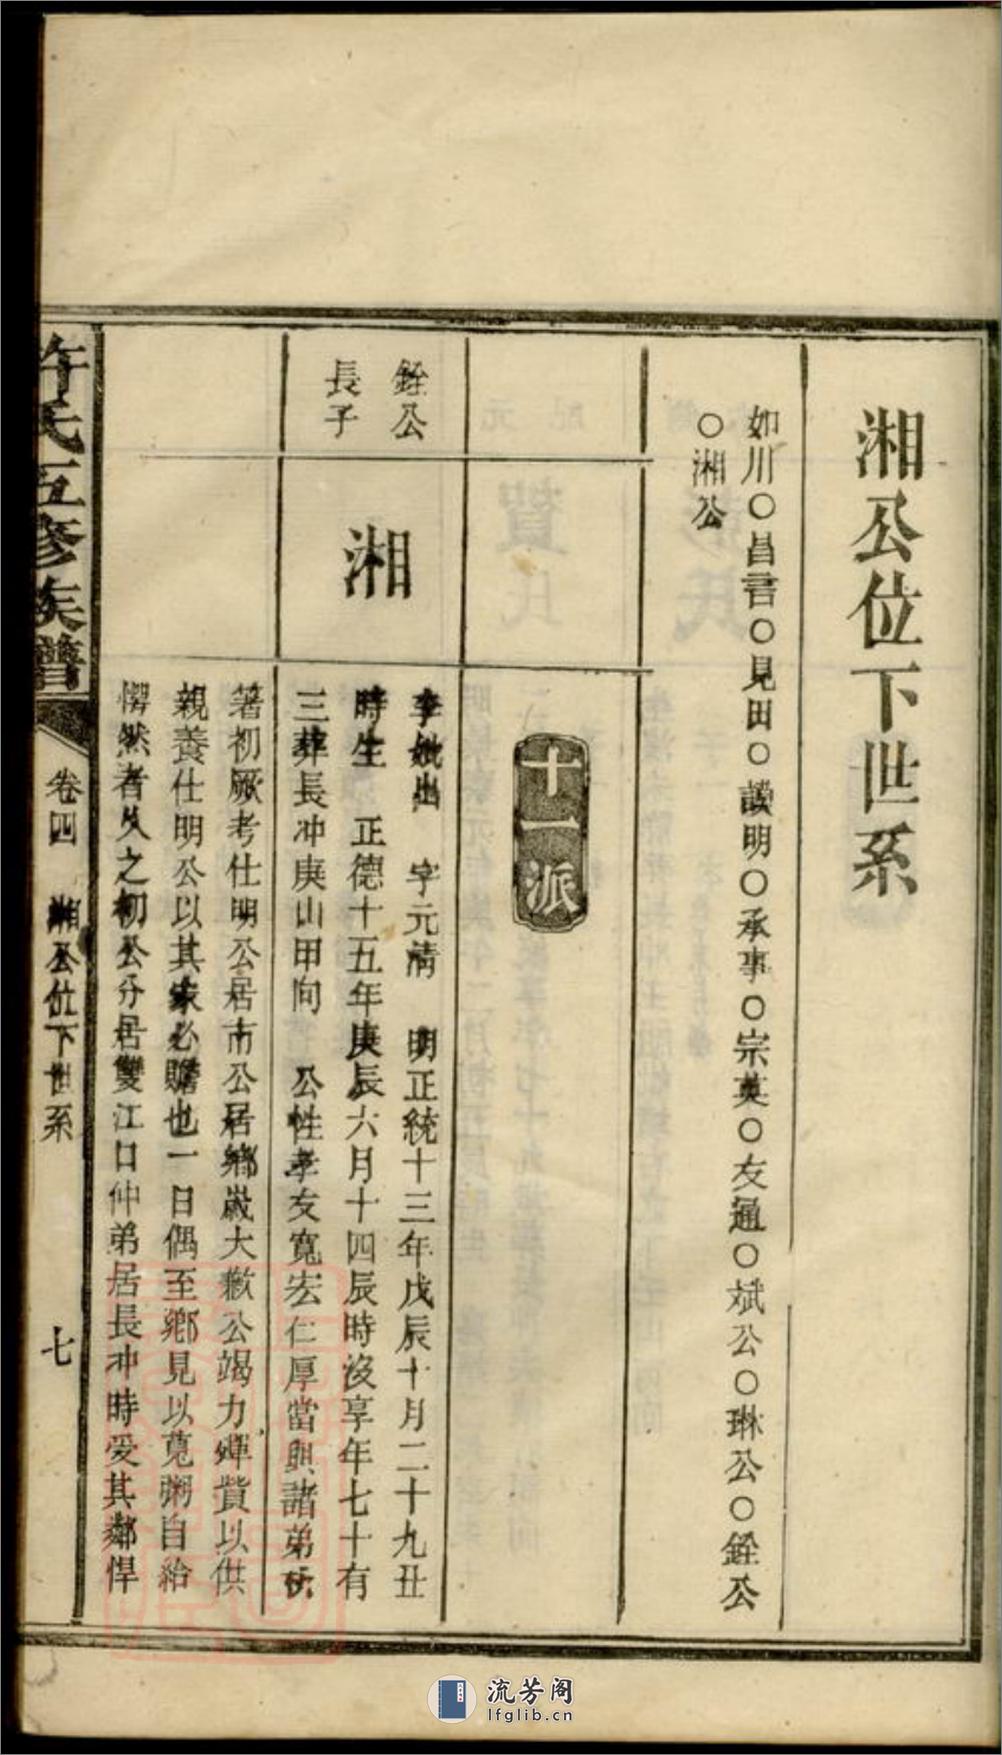 湘公位下世系
如川○昌言○見田○讚明○承事○宗英○友通○斌公○琳公○銓公
○湘公
十一派
銓公
長子
湘
李妣出　字元清　明正統十三年戊辰十月二十九丑
時生　正德十五年庚辰六月十四辰時沒享年七十有
三葬長冲庚山甲向　公性孝友寬宏仁厚當與諸弟析
箸初厥考仕明公居市公居鄉歲大歉公竭力殫貲以供
親養仕明公以其家必贍也一日偶至鄉見以萈粥自給
愕然者久之初公分居雙江口仲弟居長冲時爱其鄰悍
許氏五修族譜
卷四　湘公位下世系
七
流芳阁
lfglib.cn